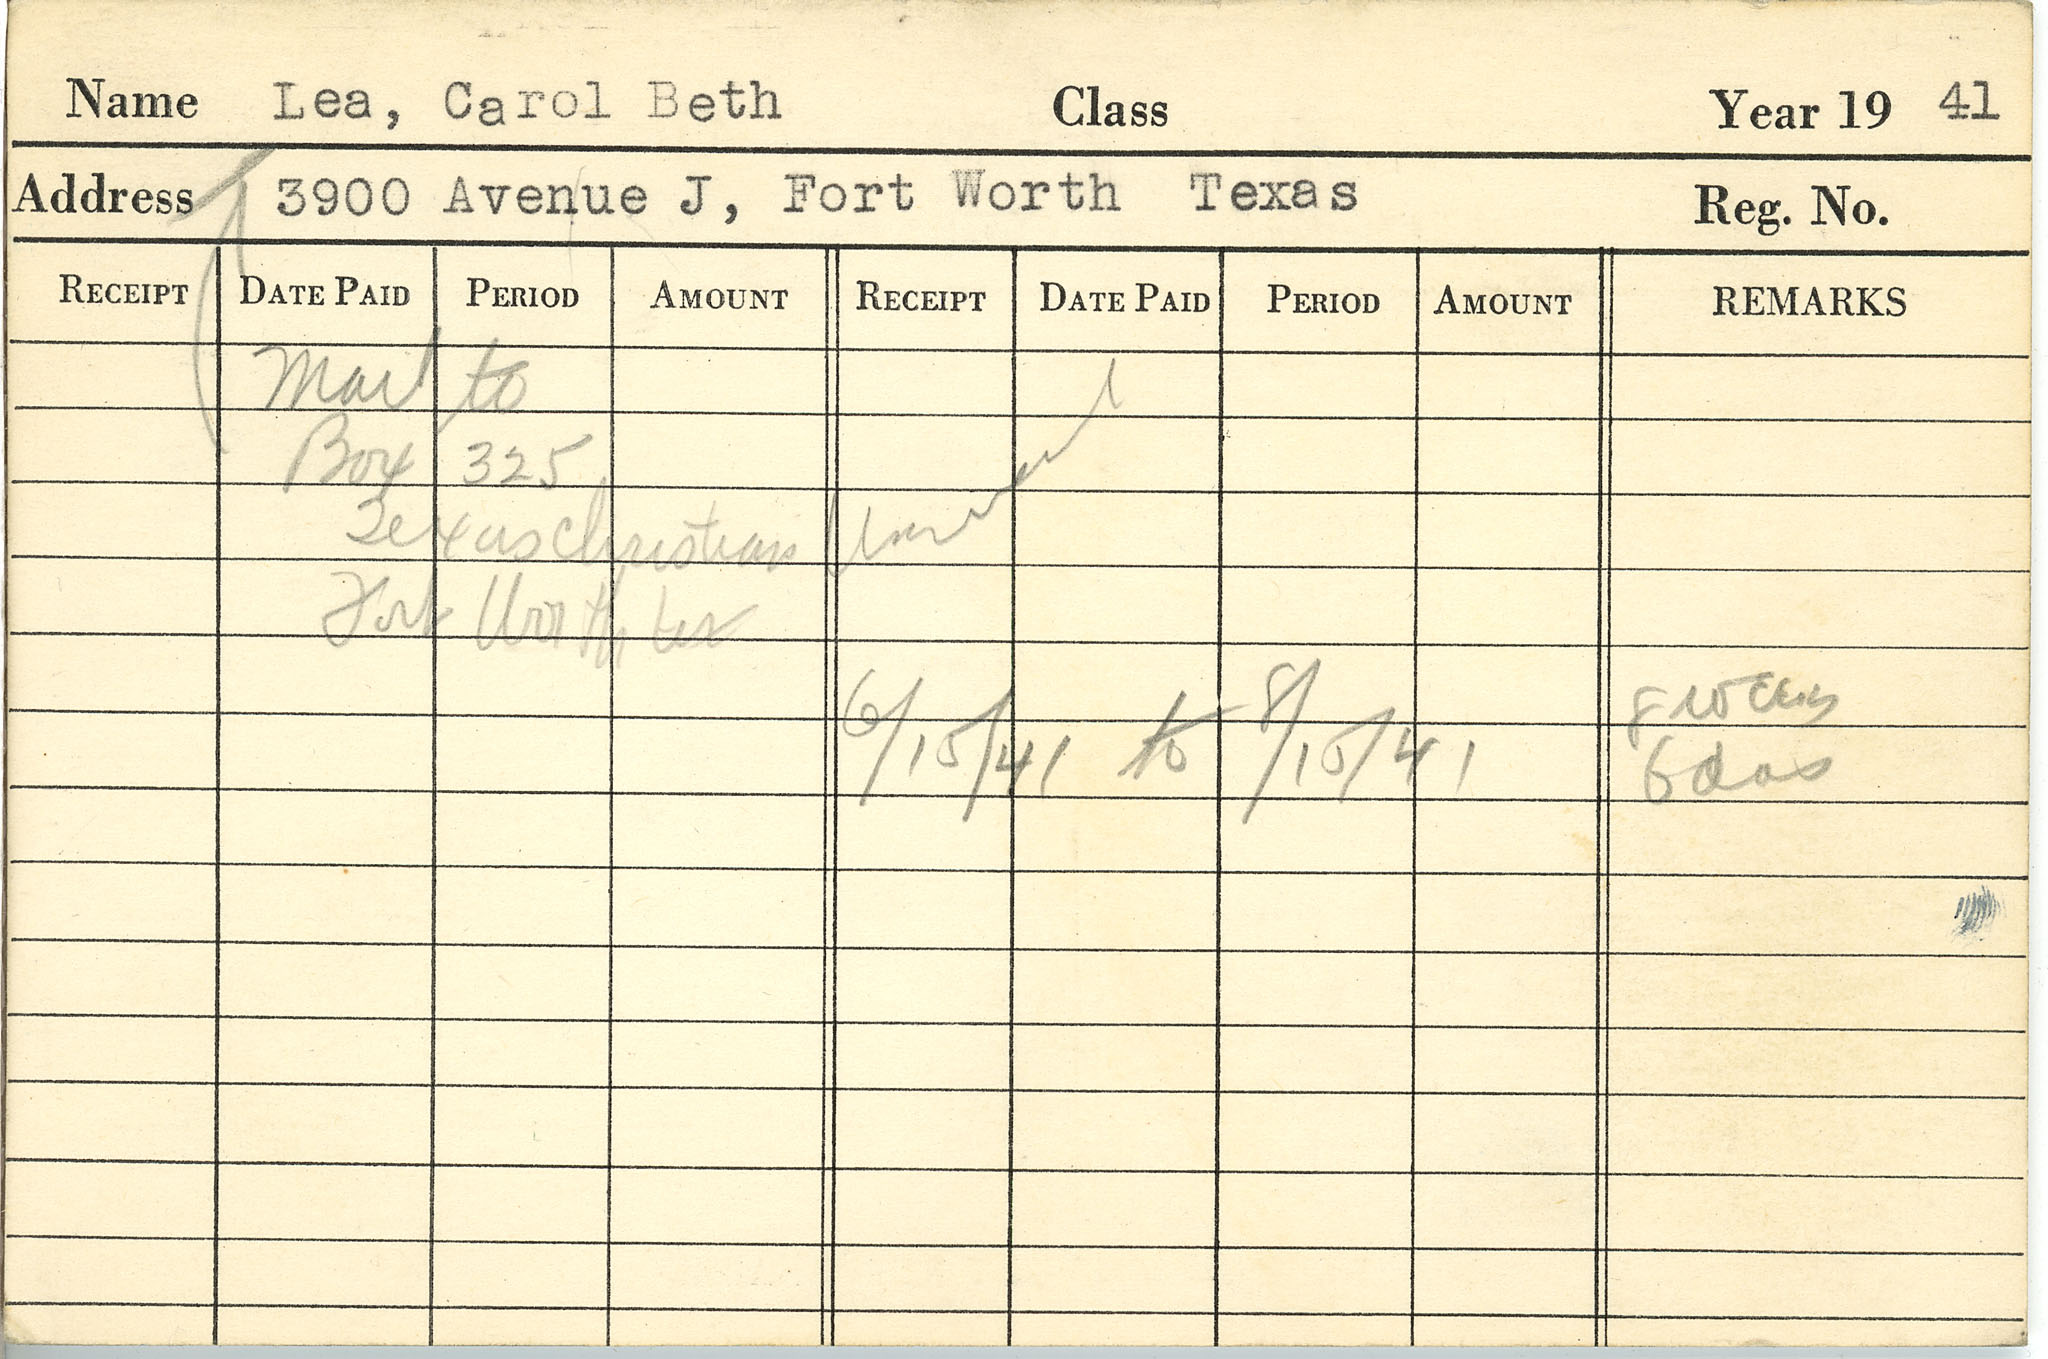 Name Lea, Carol Beth Class Year 19 41
Address 3900 Avenue J, Fort Worth Texas Reg. No.
RECEIPT DATE PAID PERIOD AMOUNT RECEIPT DATE PAID PERIOD AMOUNT REMARKS
Mail to
Box 325
Texas Christian
Fort Worth, Tex
6/15/41 to 8/15/41
8
6 das